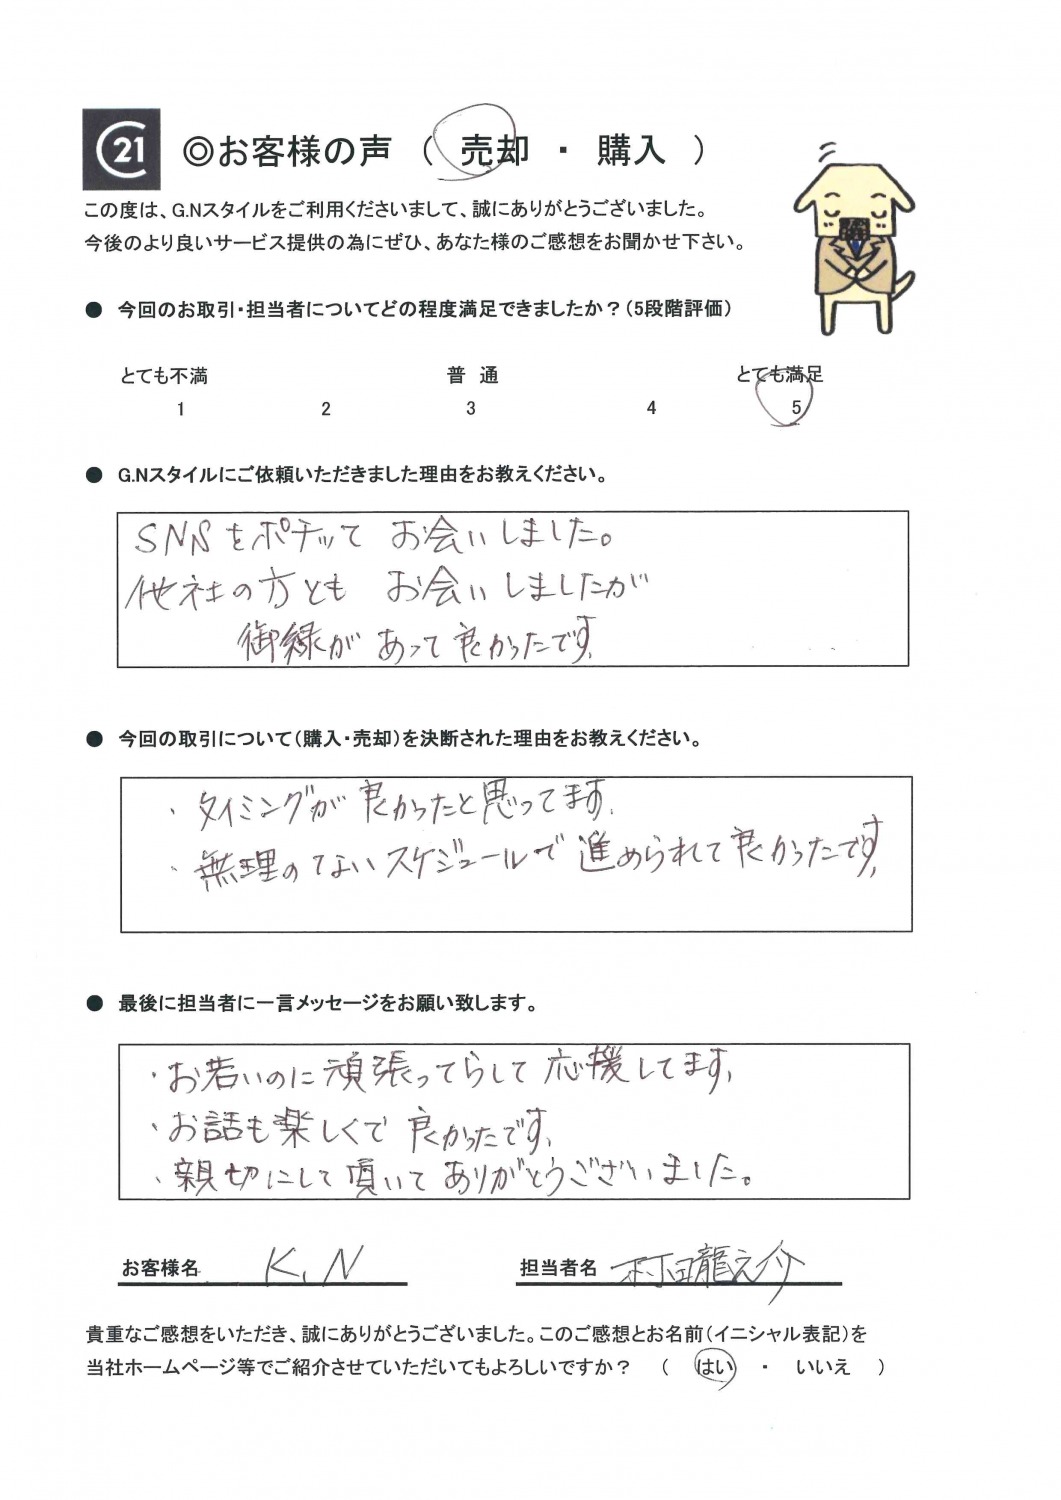 C21
◎お客様の声 ( 売却 ・ 購入 )
この度は、G.Nスタイルをご利用くださいまして、誠にありがとうございました。
今後のより良いサービス提供の為にぜひ、あなた様のご感想をお聞かせ下さい。
● 今回のお取引・担当者についてどの程度満足できましたか？(5段階評価)
とても不満 普 通 とても満足
1 2 3 4 5
● G.Nスタイルにご依頼いただきました理由をお教えください。
SNSをポチッて お会いしました。
他社の方とも お会いしましたが
御縁が あって 良かったです。
● 今回の取引について(購入・売却)を決断された理由をお教えください。
・タイミングが 良かったと思ってます。
・無理のてないスケジュールで 進められて良かったです。
● 最後に担当者に一言メッセージをお願い致します。
・お若いのに頑張ってらして 応援してます。
・お話も楽しくて 良かったです。
・親切にして頂いて ありがとうございました。
お客様名 K.N 担当者名 村田龍之介
貴重なご感想をいただき、誠にありがとうございました。このご感想とお名前(イニシャル表記)を
当社ホームページ等でご紹介させていただいてもよろしいですか？ ( はい ・ いいえ )